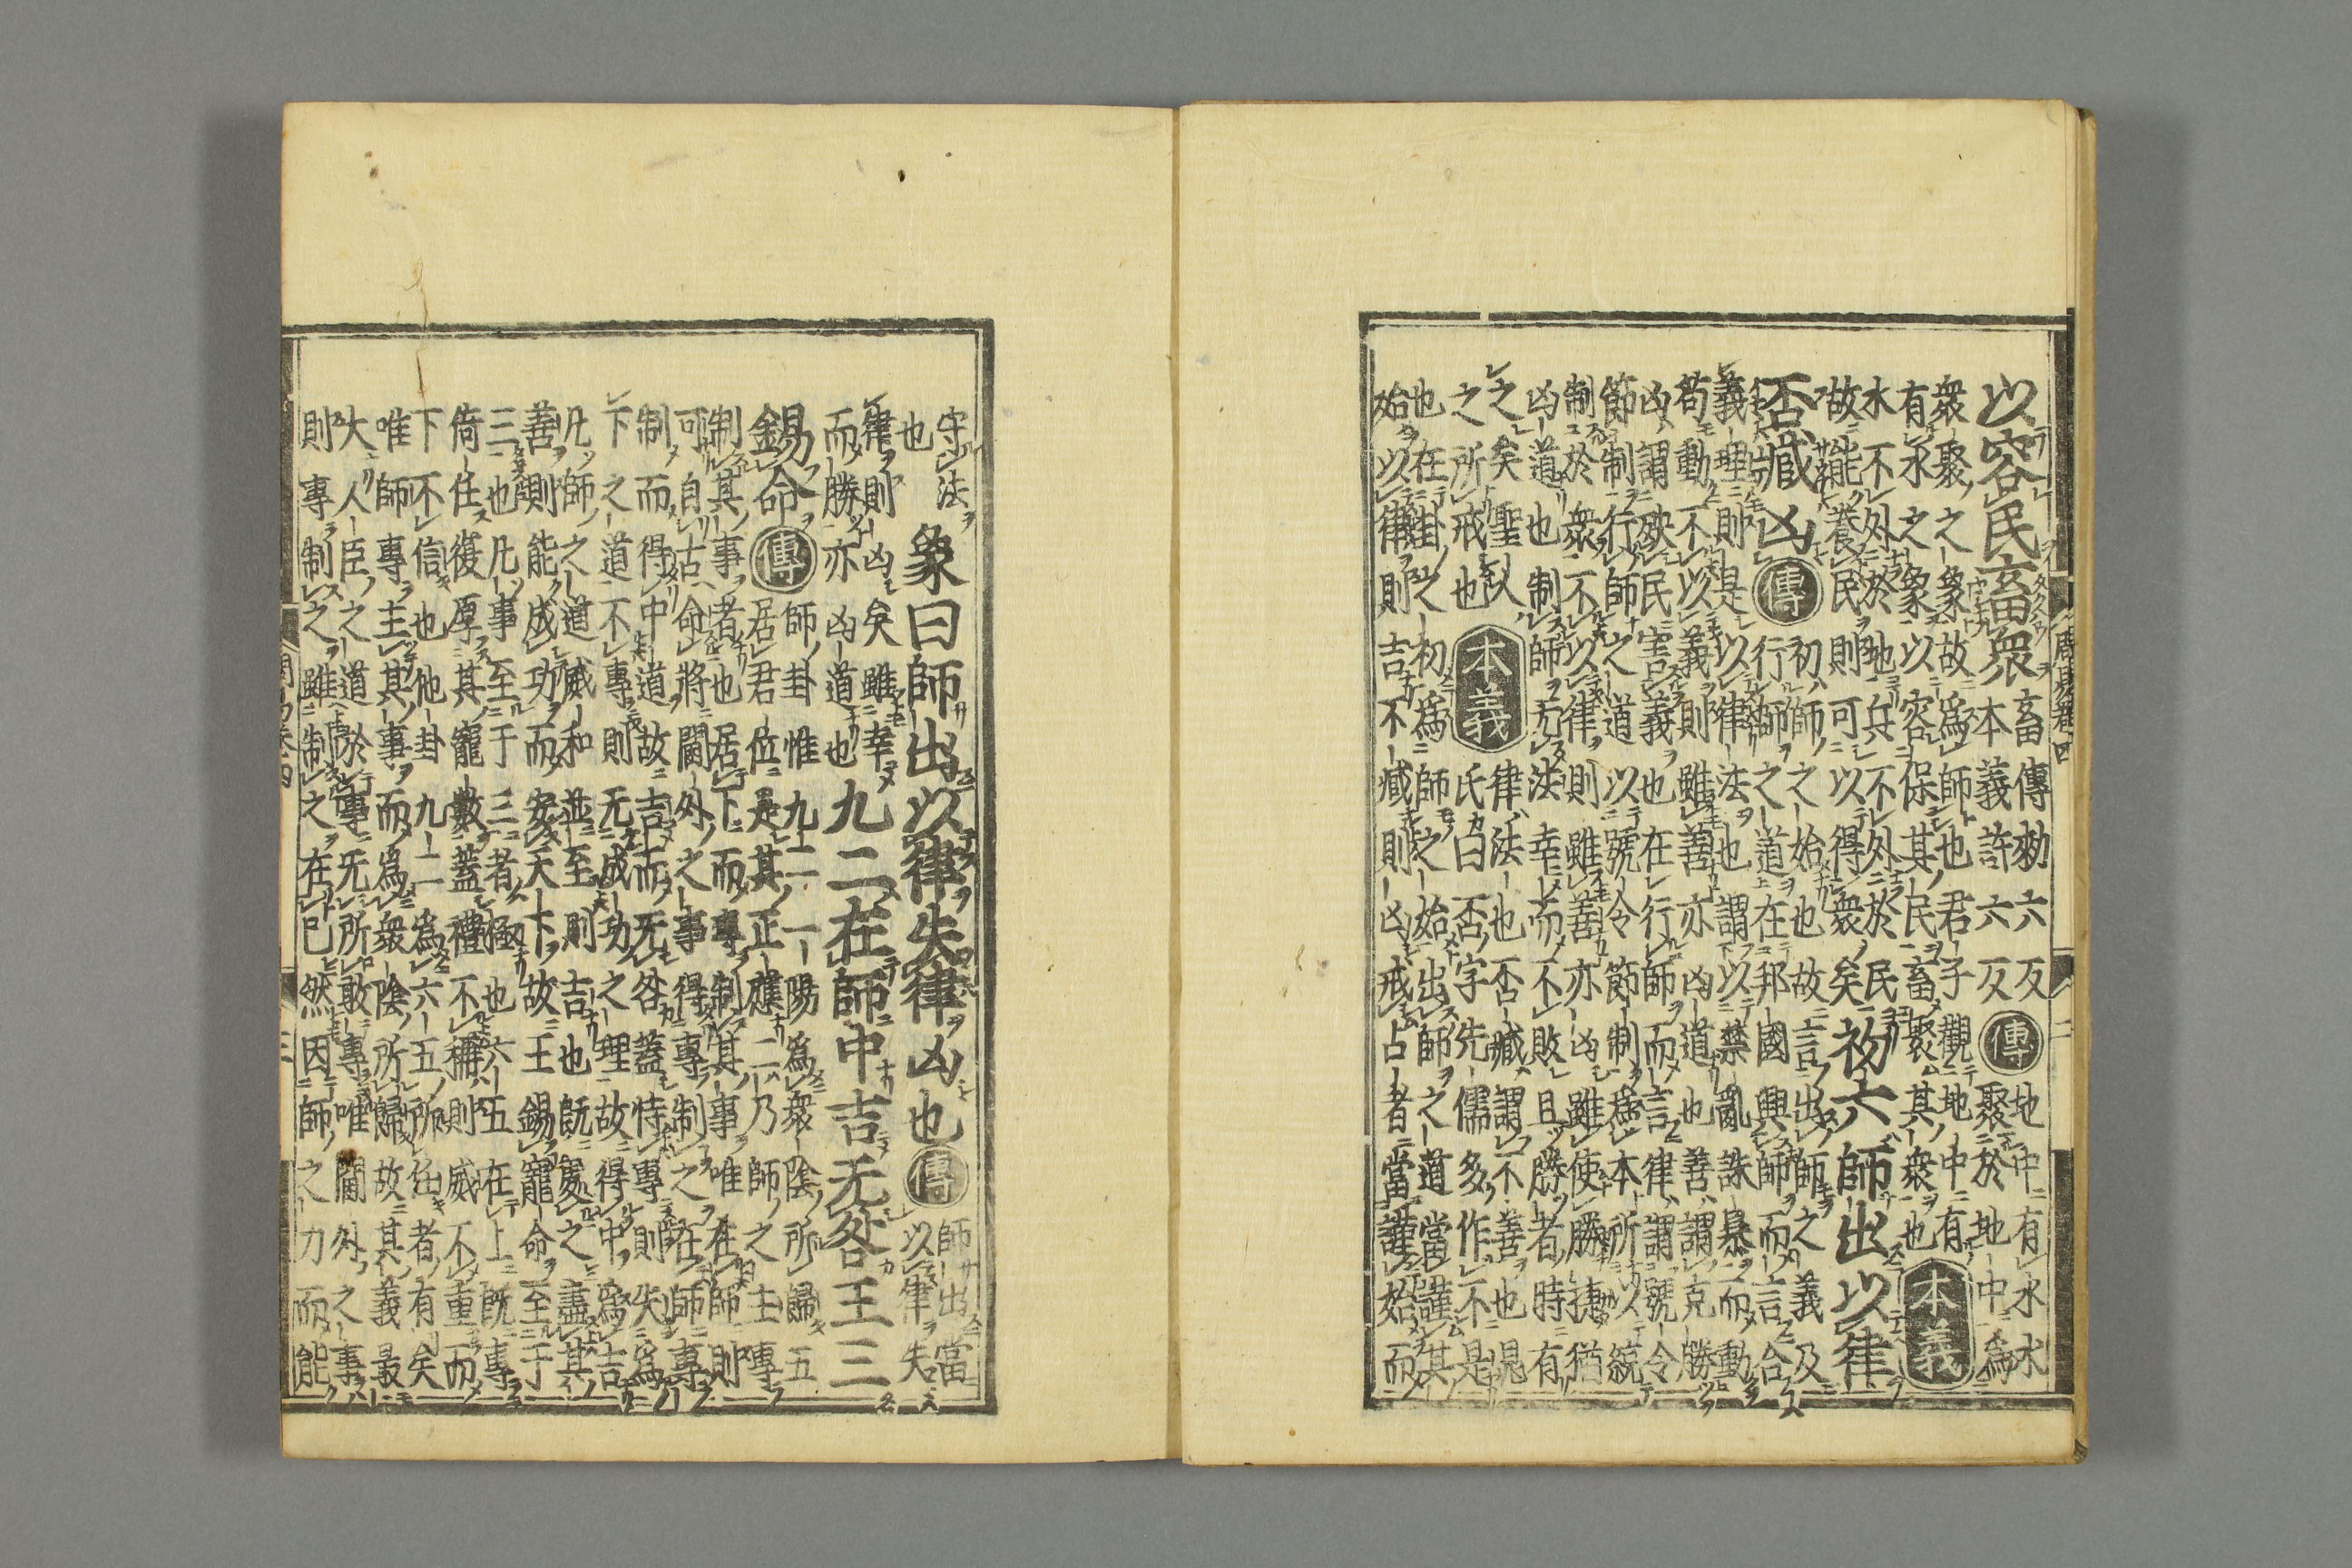 周易卷四 三
以容民畜衆
畜傳勑六反
本義許六反
傳
地中有水水
聚於地中為
衆聚之象故為師也君子觀地中有
有水之象以容保其民畜聚其衆也
本義
水不外於地兵不外於民
故能養民則可以得衆矣
初六師出以律
否臧凶
傳
初師之始也故言出師之義及
行師之道在邦國興師而言合
義理則是以律法也謂以禁亂誅暴而動
苟動不以義則雖善亦凶道也善謂克勝
凶謂殃民害義也在行師而言律謂號令
節制行師之道以號令節制為本所以統
制於衆不以律則雖善亦凶雖使勝捷猶
凶道也制師无法幸而不敗且勝者時有
之矣聖人
之所戒也
本義
律法也否臧謂不善也晁
氏曰否字先儒多作不是
也在卦之初為師之始出師之道當謹其
始以律則吉不臧則凶戒占者當謹始而
守法
也
象曰師出以律失律凶也
傳
師出當
以律失
律則凶矣雖幸
而勝亦凶道也
九二在師中吉无咎王三
錫命
傳
師卦惟九二一陽為衆陰所歸五
居君位是其正應二乃師之主專
制其事者也居下而專制其事唯在師則
可自古命將閫外之事得專制之在師專
制而得中道故吉而无咎蓋恃專則失為
下之道不專則无成功之理故得中為吉
凡師之道威和並至則吉也既處之盡其
善則能成功而安天下故王錫寵命至于
三也凡事至于三者極也六五在上既專
倚任復厚其寵數蓋禮不稱則威不重而
下不信也他卦九二為六五所任者有矣
唯師專主其事而為衆陰所歸故其義最
大人臣之道於事无所敢專唯閫外之事
則專制之雖制之在已然因師之力而能